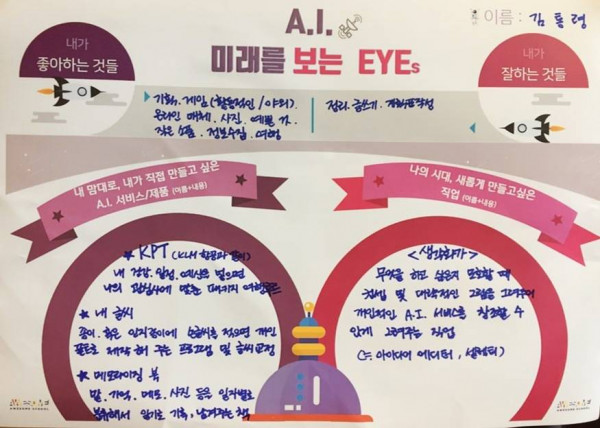 A.I.
미래를 보는 EYEs
이름 : 김통령
내가
좋아하는 것들
내가
잘하는 것들
기획. 게임(활동적인 / 야외).
온라인 매체. 사진. 예쁜 것.
작은 소품. 정보수집. 여행
정리. 글쓰기. 계획표작성
내 맘대로, 내가 직접 만들고 싶은
A.I. 서비스/제품 (이름+내용)
나의 시대, 새롭게 만들고싶은
직업 (이름+내용)
★ KPT (KLM 항공과 같이)
내 건강, 일정, 예산을 넣으면
나의 관심사에 맞춘 패키지 여행
★ 내 글씨
종이, 혹은 인지판에 손글씨를 적으면 개인
폰트로 제작 해 주는 프로그램 및 글씨교정
★ 메모라이징 북
말. 기억. 메모. 사진 등을 일자별로
분류해서 일기로 기록, 남겨주는 책
<생각화가>
무엇을 하고 싶은지 모호할 때
컨셉 및 대략적인 그림을 그려주어
개인적인 A.I. 서비스를 창조할 수
있게 그려주는 직업
(= 아이디어 에디터,
AWESOME SCHOOL
AWESOME SCHOOL